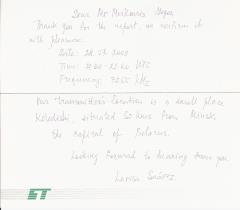 Dear Mr
Thank you for the report, we confirm it
with pleasure:
Date: 2008
Time: UTC
Frequency: 7255 kHz
Our transmitter's location is a small place
situated 50 kms from Minsk,
the capital of Belarus.
Looking forward to hearing from you
Larisa